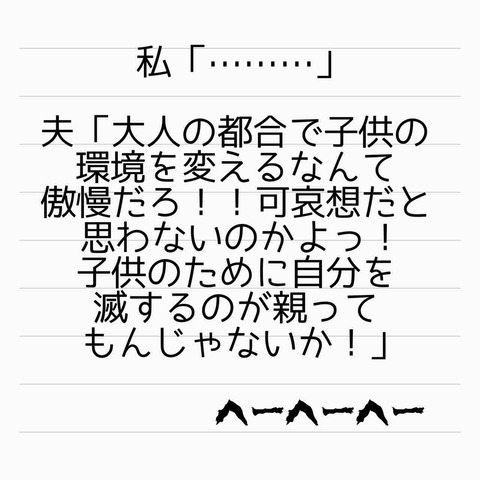 私「………」
夫「大人の都合で子供の
環境を変えるなんて
傲慢だろ！！可哀想だと
思わないのかよっ！
子供のために自分を
滅するのが親って
もんじゃないか！」
へーへーへー